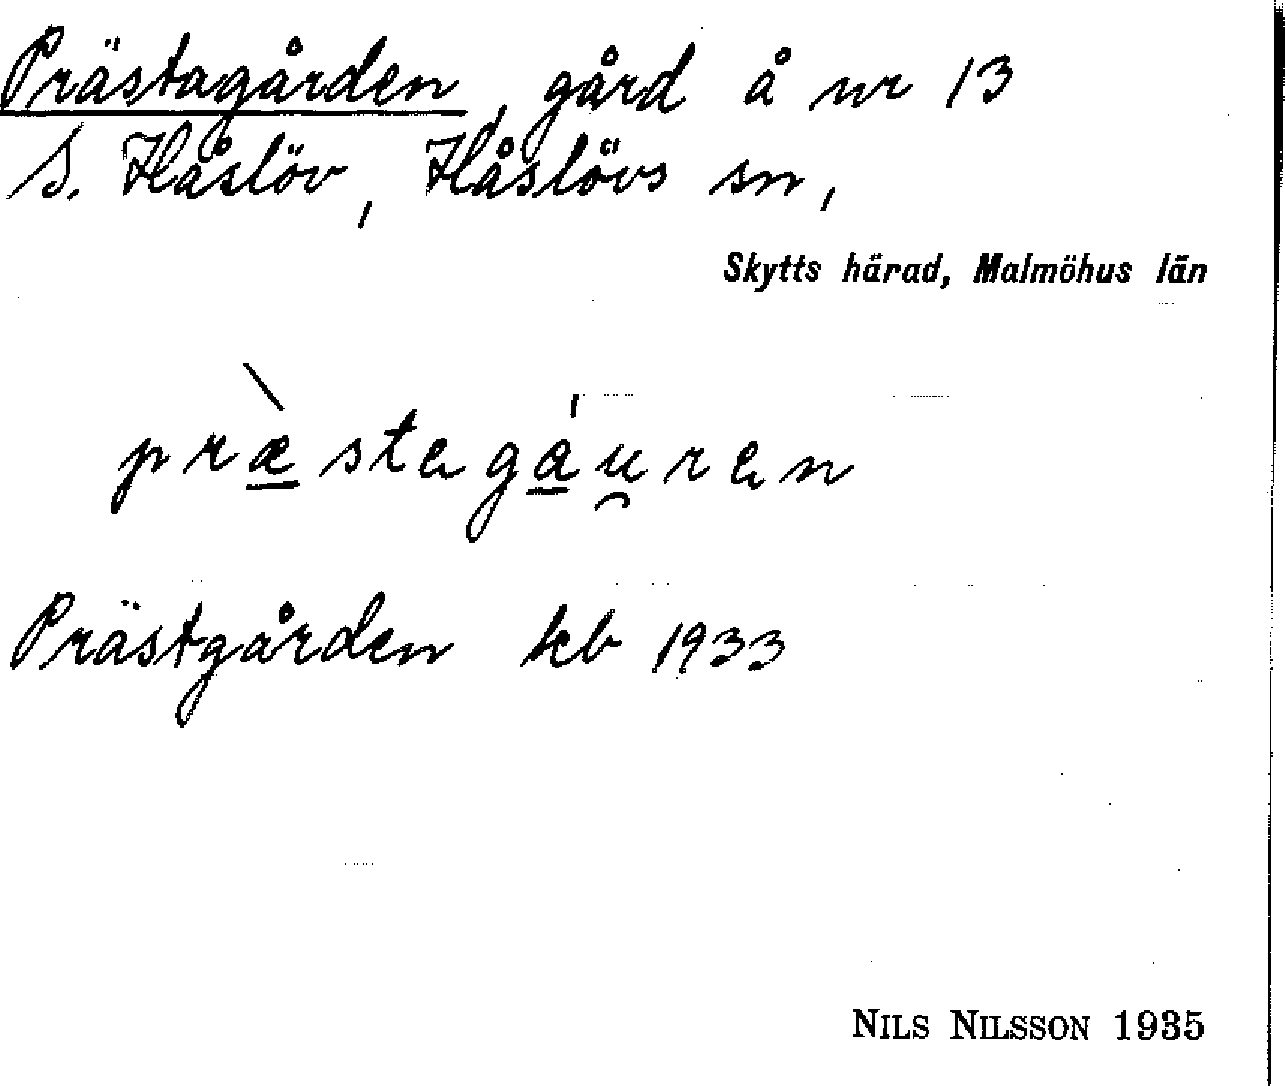 Prästagården, gård å nr 13
S. Håslöv, Håslövs sn,
Skytts härad, Malmöhus län
præ̱̀stega̱̍u̯ren
Prästgården kb 1933
NILS NILSSON 1935